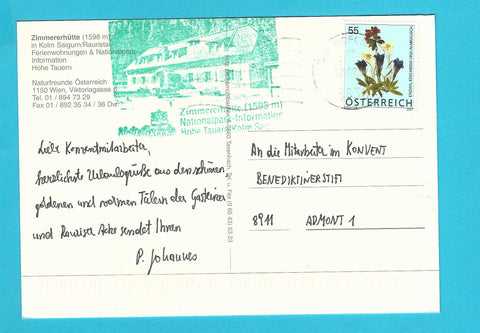 Zimmererhütte (1598 m)
in Kolm Saigurn/Rauristal
Ferienwohnungen & Nationalpark-
Information
Hohe Tauern
Naturfreunde Österreich
1150 Wien, Viktoriagasse
Tel. 01 / 894 73 29
Fax 01 / 892 35 34 / 36 Dw
Zimmererhütte (1598 m)
Nationalpark-Information
Hohe Tauern/Kolm
55
ÖSTERREICH
Taxenbach, Tel. u. Fax (0 65 43) 53 23
Liebe Konventmitarbeiter,
herzlichste Urlaubsgrüße aus den schönen,
goldenen und warmen Tälern der Gasteiner
und Rauriser Ache sendet Ihnen
P. Johannes
An die Mitarbeiter im KONVENT
BENEDIKTINERSTIFT
8911 ADMONT 1